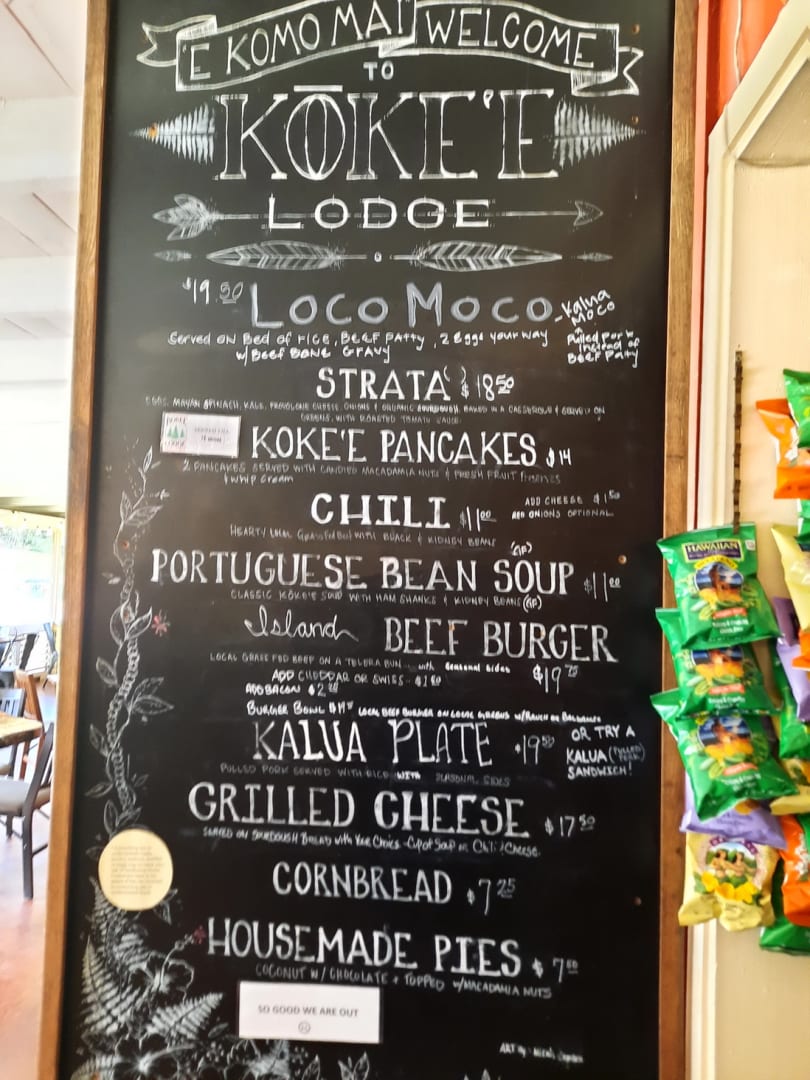 'E KOMO MAI WELCOME
TO
KŌKE'E
LODGE
$19.50 LOCO MOCO - Kalua MOCO
Served on Bed of RICE, BEEF PATTY, 2 Eggs your way
w/ Beef BONE GRAVY
Pulled Pork
instead of
BEEF Patty
STRATA $18.50
EGGS, MAYAN SPINACH, KALE, PROVOLONE CHEESE, ONIONS & ORGANIC SOURDOUGH, BAKED IN A CASSEROLE & SERVED ON
GREENS, WITH ROASTED TOMATO SAUCE
KOKE'E PANCAKES $14
2 PANCAKES SERVED WITH CANDIED MACADAMIA NUTS & FRESH FRUIT
& whip Cream
CHILI $11.00
ADD CHEESE $1.50
ADD ONIONS OPTIONAL
HEARTY LOCAL Grass Fed Beef WITH BLACK & KIDNEY BEANS
(GF)
PORTUGUESE BEAN SOUP $11.00
CLASSIC KŌKE'E SOUP WITH HAM SHANKS & KIDNEY BEANS (GF)
Island BEEF BURGER
LOCAL GRASS FED BEEF ON A BUN with Seasonal Sides $19.75
ADD CHEDDAR OR SWISS
ADD BACON
BURGER BOWL LOCAL BEEF BURGER ON LOCAL GREENS w/RANCH OR BALSAMIC
KALUA PLATE $19.50
OR TRY A
KALUA (PULLED PORK)
SANDWICH!
PULLED PORK SERVED WITH RICE WITH SEASONAL SIDES
GRILLED CHEESE $17.50
SERVED ON SOURDOUGH BREAD with Your Choice - Cup of Soup or Chili/Cheese
CORNBREAD $7.25
HOUSEMADE PIES $7.50
COCONUT W/ CHOCOLATE & TOPPED W/MACADAMIA NUTS
SO GOOD WE ARE OUT
ART by:
HAWAIIAN